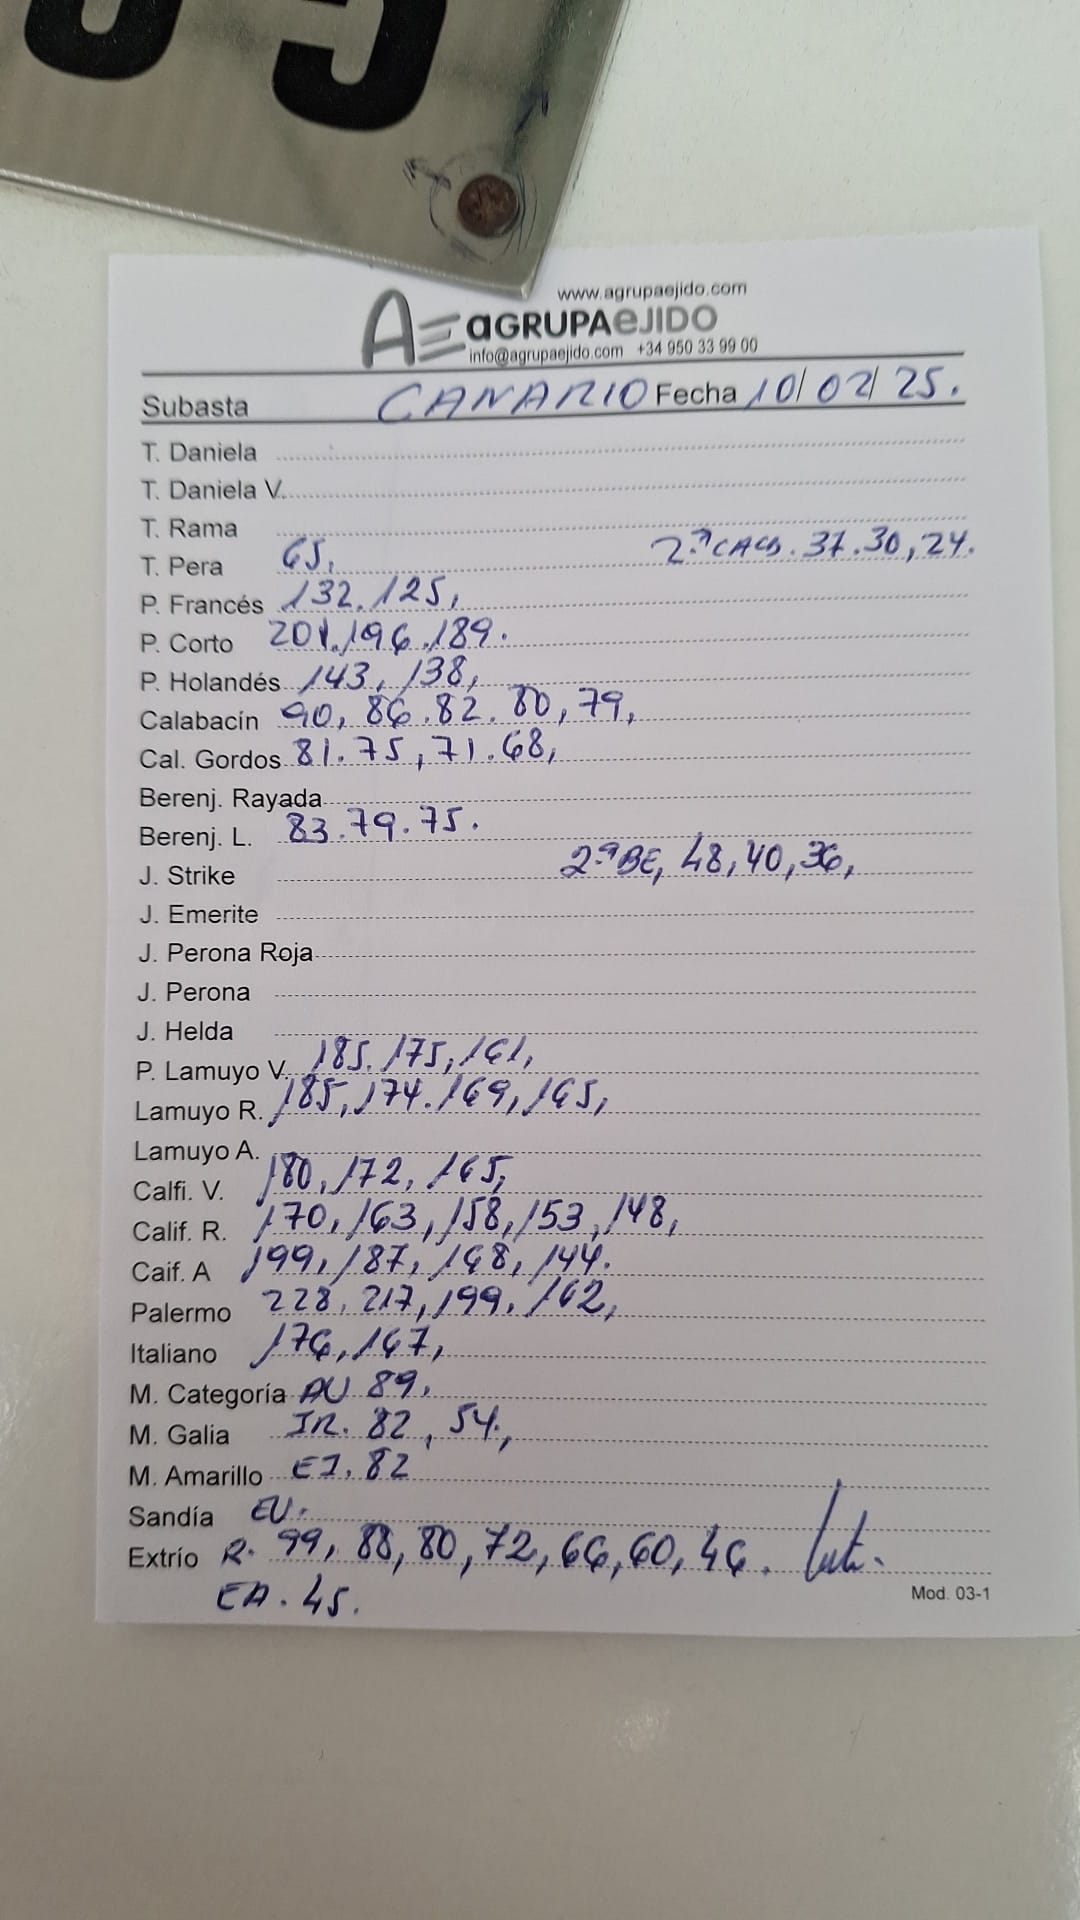 www.agrupaejido.com
AE aGRUPAeJIDO
info@agrupaejido.com +34 950 33 99 00
Subasta CANARIO Fecha 10/02/25.
T. Daniela
T. Daniela V.
T. Rama
T. Pera 65, 2.ª CACB. 37.30,24.
P. Francés 132.125,
P. Corto 201.196.189.
P. Holandés 143, 138,
Calabacín 90, 86.82.80,79,
Cal. Gordos 81.75,71.68,
Berenj. Rayada
Berenj. L. 83.79.75.
J. Strike 2.ª BE, 48,40,36,
J. Emerite
J. Perona Roja
J. Perona
J. Helda
P. Lamuyo V. 185.175,161,
Lamuyo R. 185,174.169,165,
Lamuyo A.
Calfi. V. 180,172,165,
Calif. R. 170,163,158,153,148,
Caif. A 199,187,168,144.
Palermo 228.217,199.162,
Italiano 176,167,
M. Categoría AU 89.
M. Galia IR. 82, 54.,
M. Amarillo EJ. 82
Sandía EU.
Extrío R. 99, 88,80,72,66,60,46.
EA. 45.
Mod. 03-1